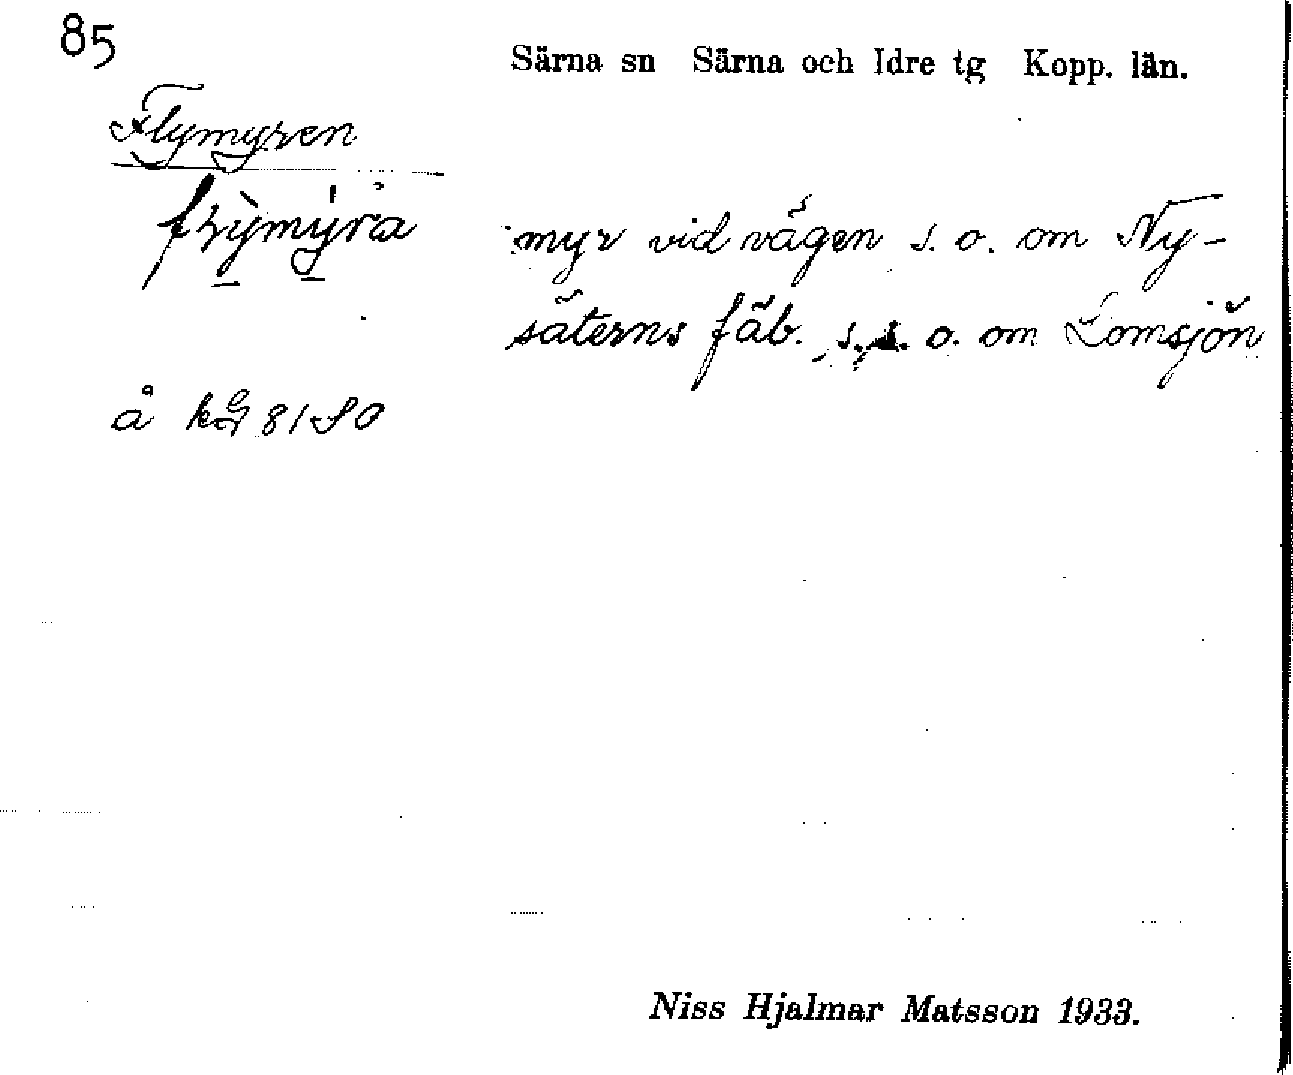 85
Särna sn Särna och Idre tg Kopp. län.
Flymyren
myr vid vägen s. o. om Ny-
säterns fäb. s. s. o. om Lomsjön
å kG 81 SO
Niss Hjalmar Matsson 1933.